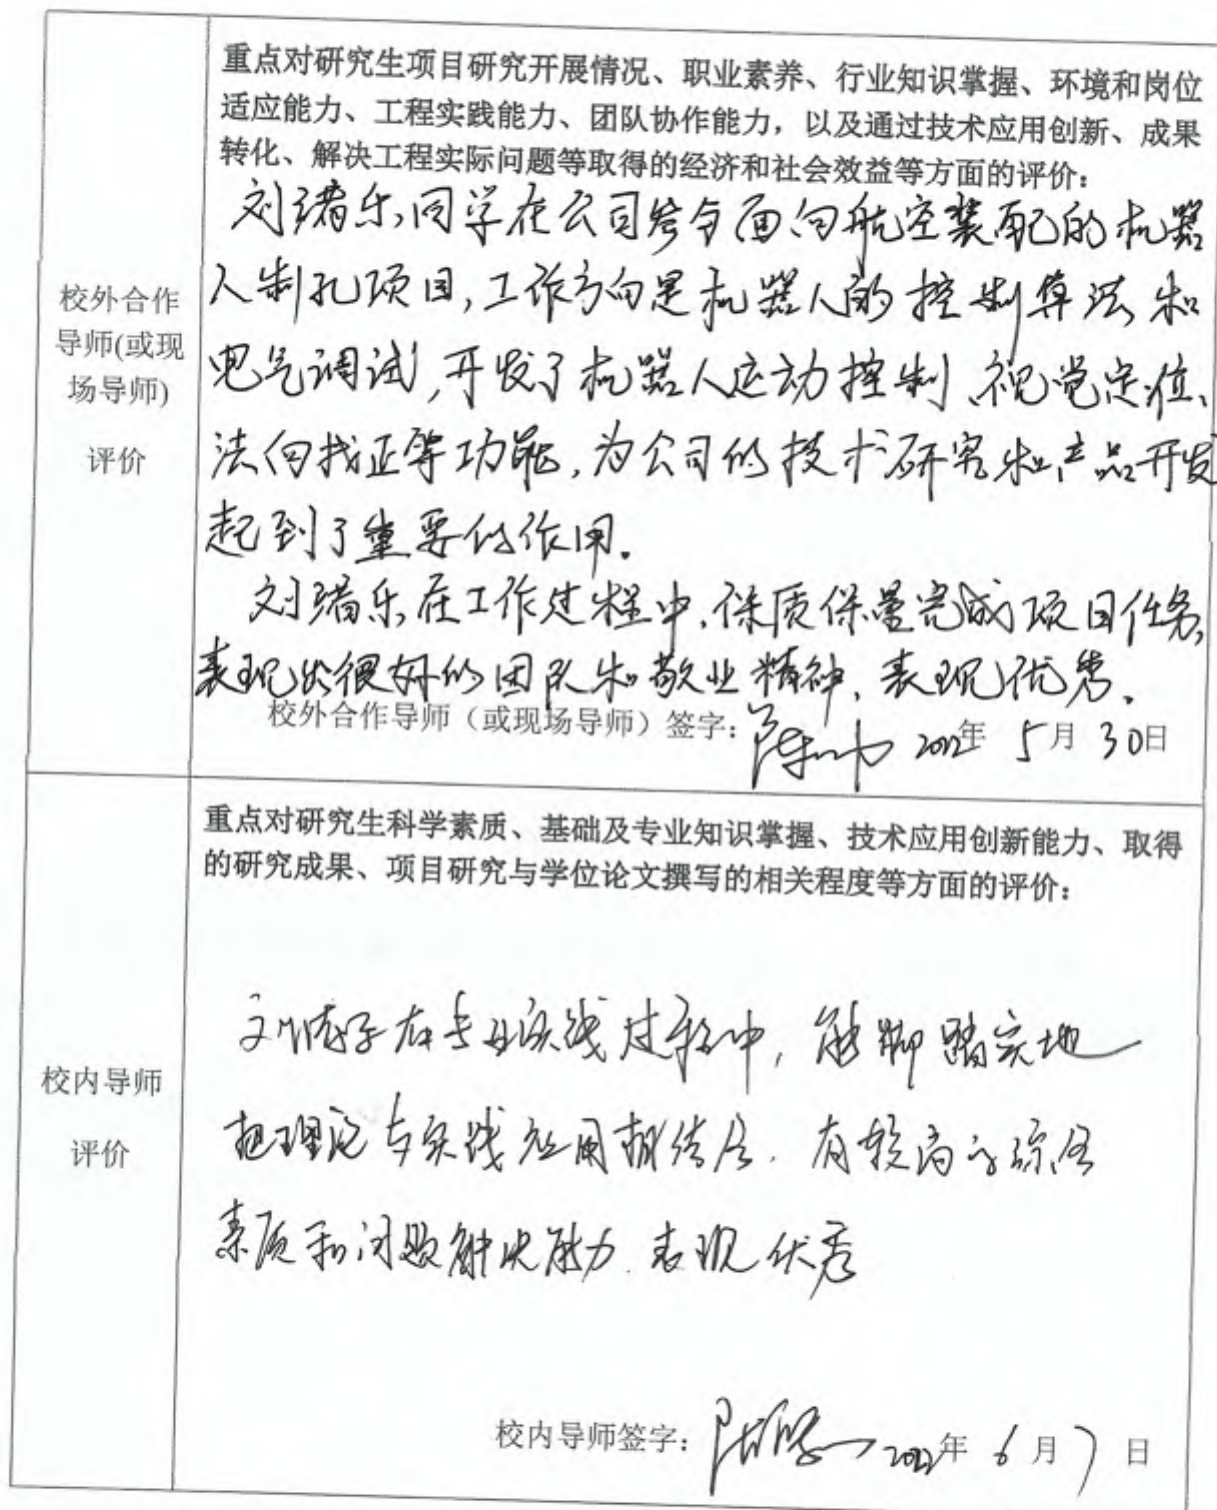 重点对研究生项目研究开展情况、职业素养、行业知识掌握、环境和岗位
适应能力、工程实践能力、团队协作能力，以及通过技术应用创新、成果
转化、解决工程实际问题等取得的经济和社会效益等方面的评价：
刘 乐同学在公司参与面向航空装配的机器
人制孔项目,工作方向是机器人的控制算法和
电气调试,开发了机器人运动控制、视觉定位、
法向找正等功能,为公司的技术研究和产品开发
起到了重要的作用.
刘 乐在工作过程中,保质保量完成项目任务,
表现出很好的团队和敬业精神,表现优秀.
校外合作
导师(或现
场导师)
评价
校外合作导师（或现场导师）签字： 2022年 5月 30日
重点对研究生科学素质、基础及专业知识掌握、技术应用创新能力、取得
的研究成果、项目研究与学位论文撰写的相关程度等方面的评价：
在专业实践过程中,能脚踏实地
把理论与实践应用相结合.有较高的综合
素质和问题解决能力.表现优秀
校内导师
评价
校内导师签字： 2022年 6月 7日